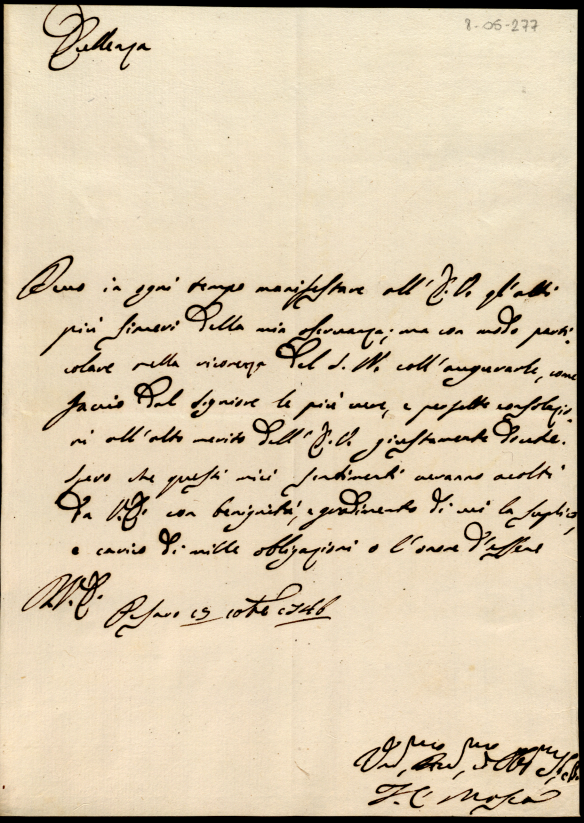 8-05-277
Eccellenza
Devo in ogni tempo manifestare all' E. V. gl' atti
più sinceri della mia osservanza; ma con modo parti
colare nella ricorenza del S. N. coll' augurarle, come
faccio dal Signore le più vere, e perfette consolazio
ni all' alto merito dell' E. V. giustamente dovute.
Spero che questi miei sentimenti veranno acolti
da V. E. con benignità, e gradimento di cui la suplico,
e carico di mille obligazioni o l' onore d' essere
D. V. E.
Pesaro 19 xbre 1746
Mosca